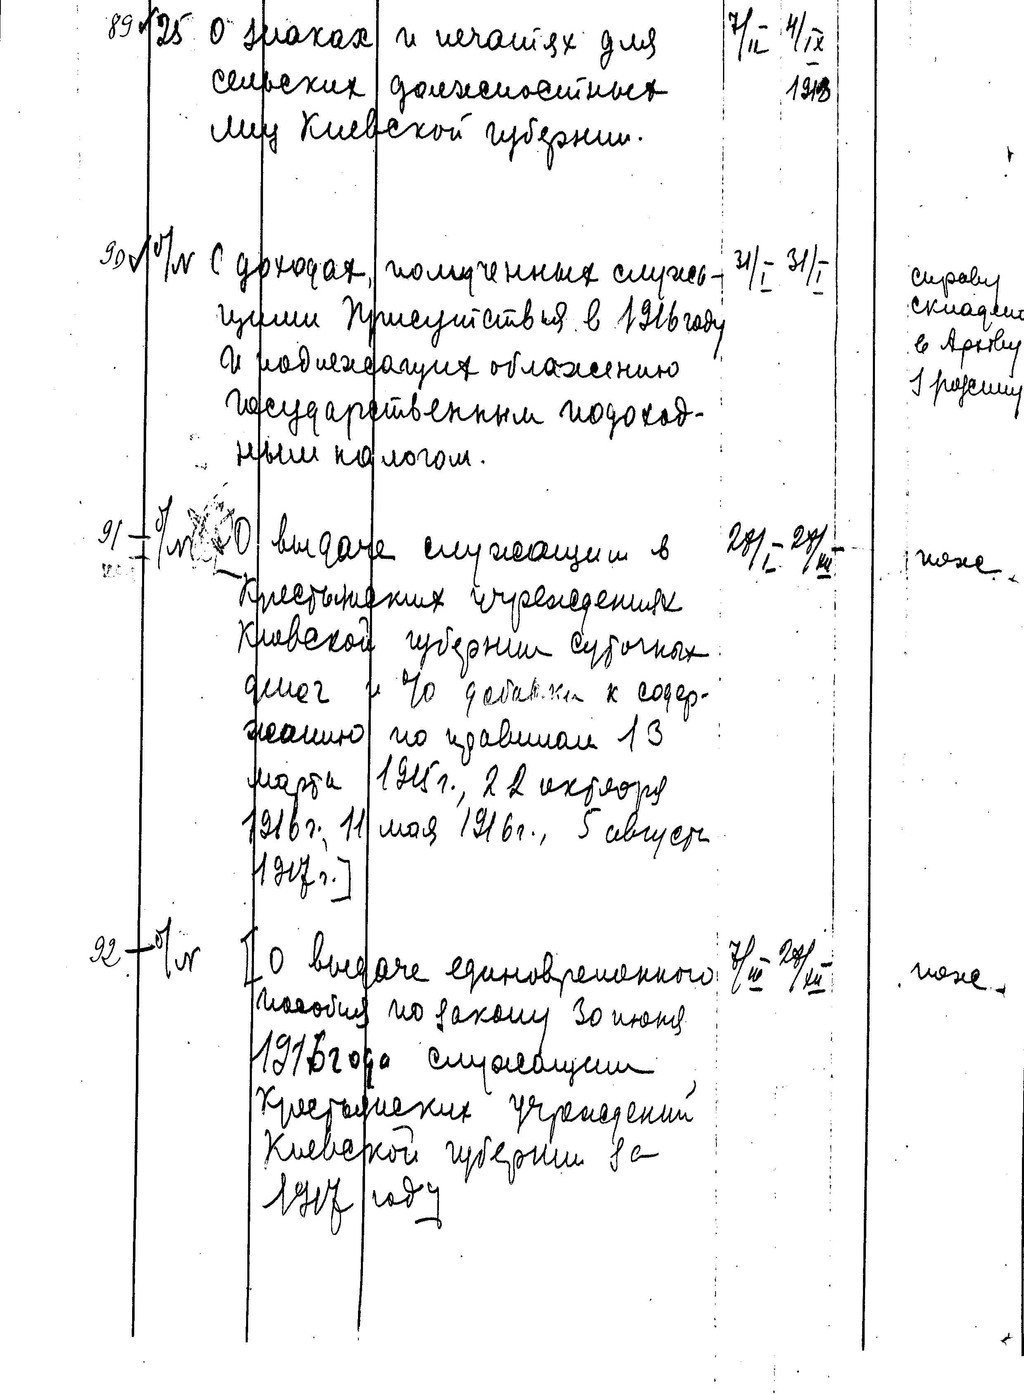 89 25 О знаках и печатях для 7/II 4/IX
сельских должностных 1918
лиц Киевской губернии.
90 б/N О доходах, полученных служа- 31/I 31/I
щими Присутствия в 1916 году
и подлежащих обложению
государственным подоход-
ным налогом.
справу
складен
в Архіву
91 б/N О выдаче служащим в 27/I 27/XII
Крестьянских учреждениях
Киевской губернии суточных
денег и % добавки к содер-
жанию по правилам 13
марта 1915 г., 22 октября
1916 г., 11 мая 1916 г., 5 августа
1917 г.]
92 б/N [О выдаче единовременного 7/III 27/XII
пособия по закону 30 июня
1916 года служащим
Крестьянских учреждений
Киевской губернии за
1917 год]